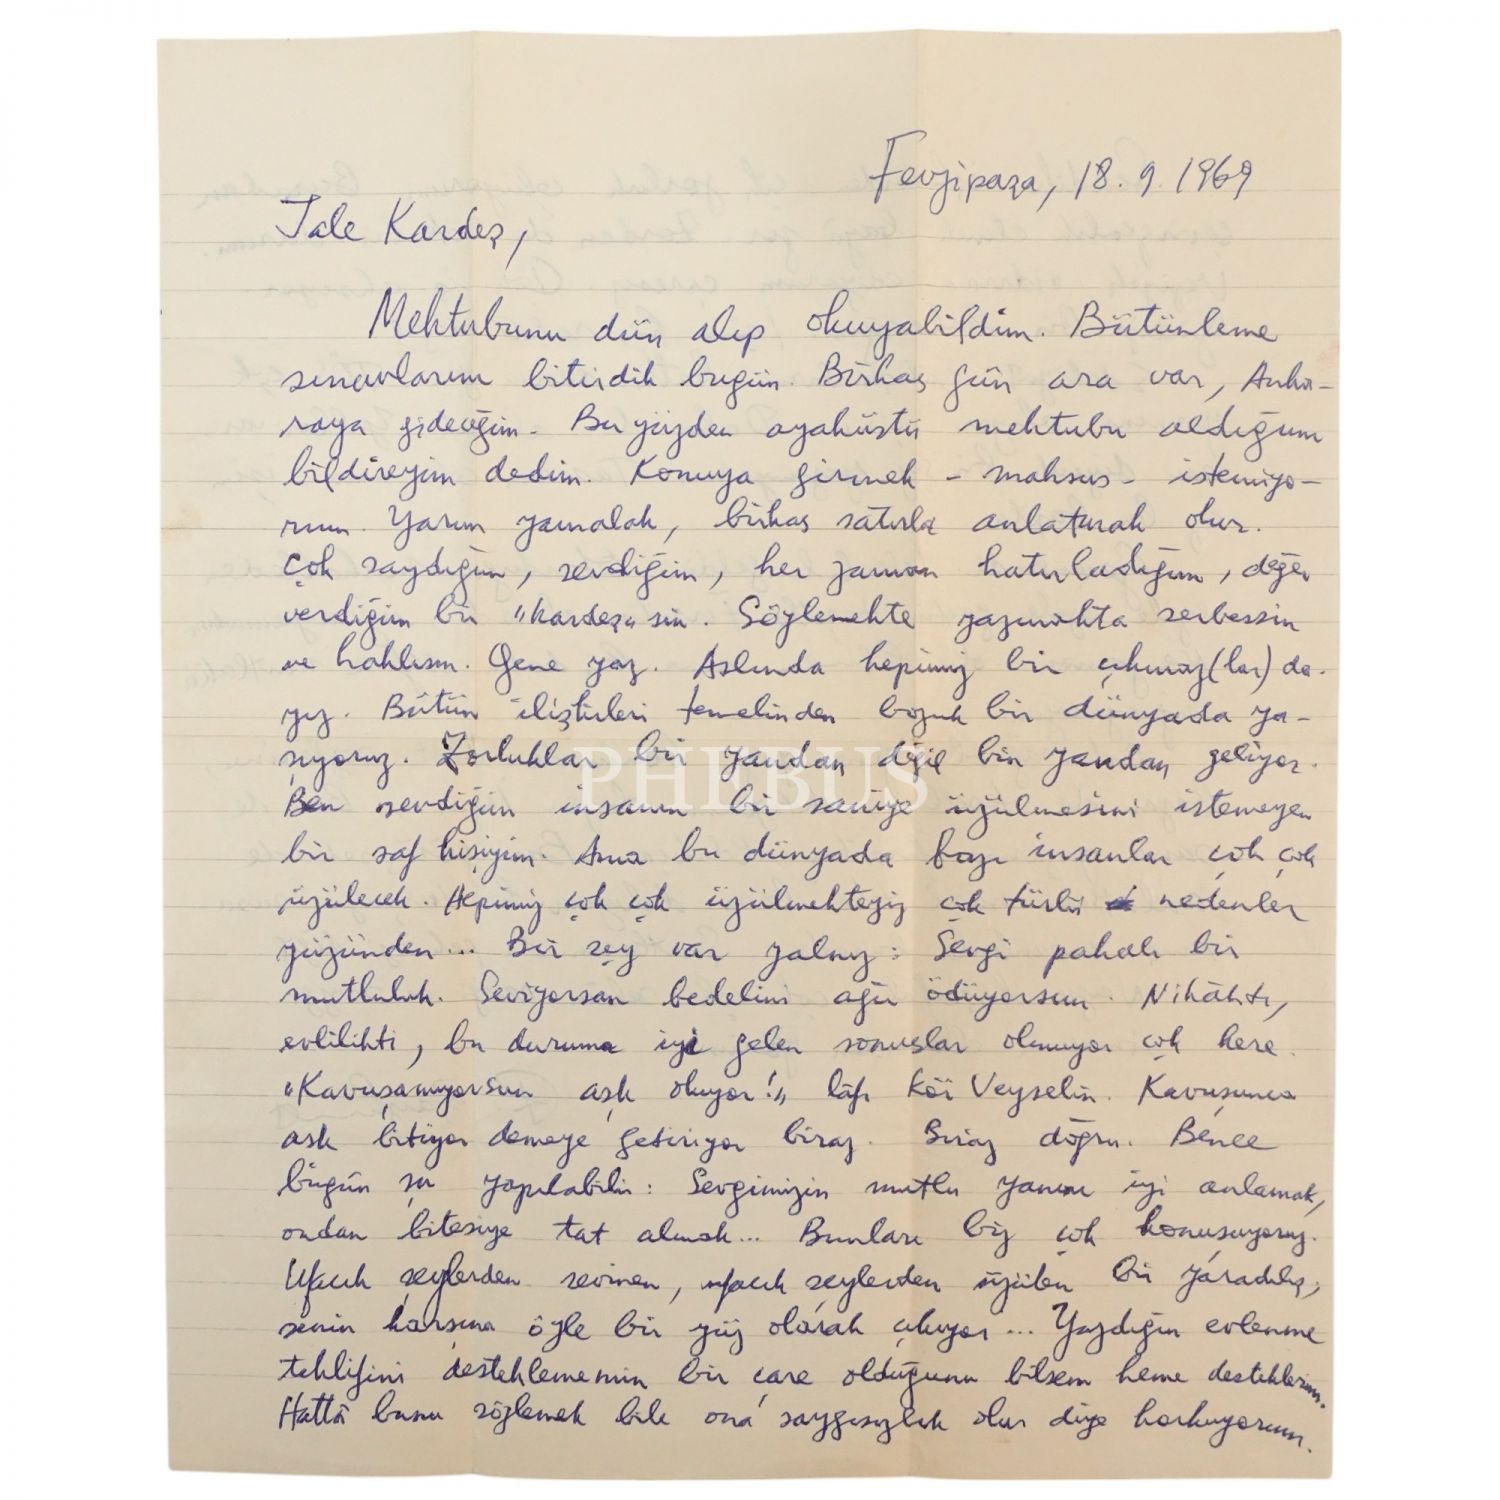 Fevzipaşa, 18.9.1969
Jale Kardeş,
Mektubunu dün alıp okuyabildim. Bütünleme
sınavlarını bitirdik bugün. Birkaç gün ara var, Anka-
raya gideceğim. Bu yüzden ayaküstü mektubu aldığımı
bildireyim dedim. Konuya girmek - mahsus - istemiyo-
rum. Yarım yamalak, birkaç satırla anlatmak olur.
Çok saydığım, sevdiğim, her zaman hatırladığım, değer
verdiğim bir "kardeş"sin. Söylemekte yazmakta serbessin
ve haklısın. Gene yaz. Aslında hepimiz bir çıkmaz(lar)da-
yız. Bütün ilişkileri temelinden bozuk bir dünyada ya-
şıyoruz. Zorluklar bir yandan değil bin yandan geliyor.
Ben sevdiğim insanın bir saniye üzülmesini istemeyen
bir saf kişiyim. Ama bu dünyada bazı insanlar çok çok
üzülecek. Hepimiz çok çok üzülmekteyiz çok türlü nedenler
yüzünden... Bir şey var yalnız: Sevgi pahalı bir
mutluluk. Seviyorsan bedelini ağır ödüyorsun. Nikâhtı,
evlilikti, bu duruma iyi gelen sonuçlar olmuyor çok kere.
"Kavuşamıyorsun aşk oluyor!" lâfı Kör Veyselin. Kavuşunca
aşk bitiyor demeye getiriyor biraz. Biraz doğru. Bence
bugün şu yapılabilir: Sevgimizin mutlu yanını iyi anlamak,
ondan bitesiye tat almak... Bunları biz çok konuşuyoruz.
Ufacık şeylerden sevinen, ufacık şeylerden üzülen bir yaradılış,
senin karşına öyle bir yüz olarak çıkıyor... Yazdığın evlenme
teklifini desteklememin bir çare olduğunu bilsem heme desteklerim.
Hattâ bunu söylemek bile ona saygısızlık olur diye korkuyorum.
PHEBUS